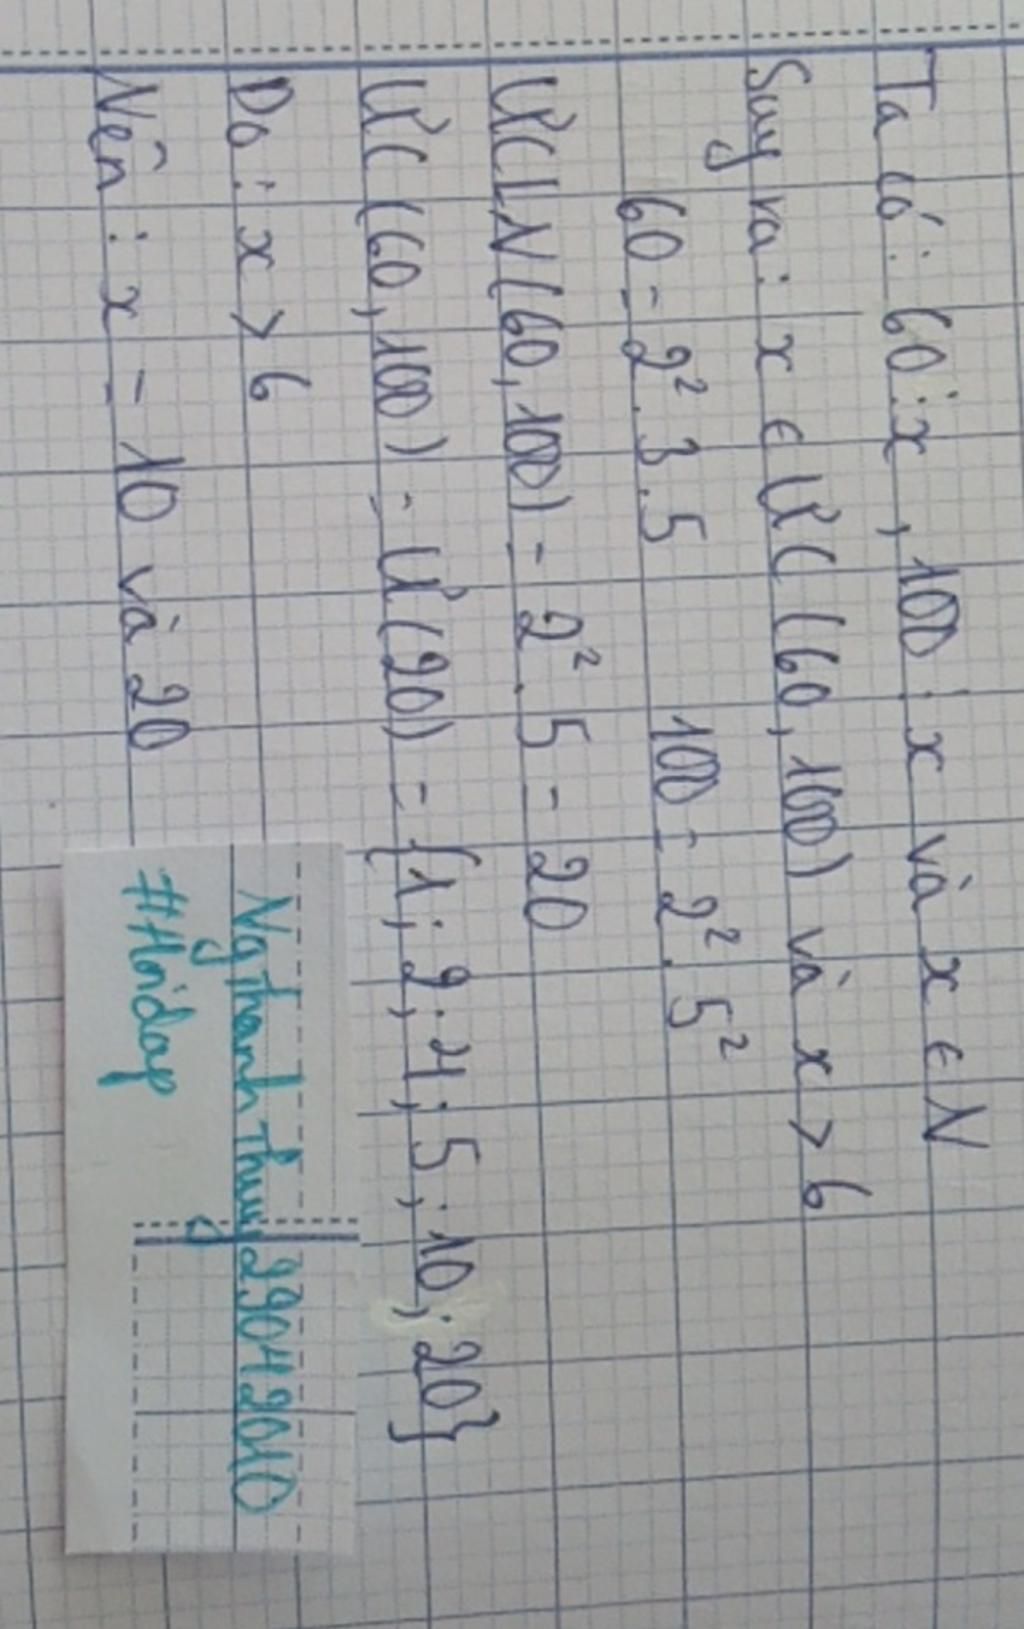 Ta có: 60 ⋮ x, 100 ⋮ x và x ∈ N
Suy ra: x ∈ ƯC (60, 100) và x > 6
60 = 2². 3. 5 100 = 2². 5²
ƯCLN (60, 100) = 2². 5 = 20
ƯC (60, 100) = Ư (20) = {1; 2; 4; 5; 10; 20}
Do: x > 6
Nên: x = 10 và 20
NgThanhThuy29042010
#Hoidap